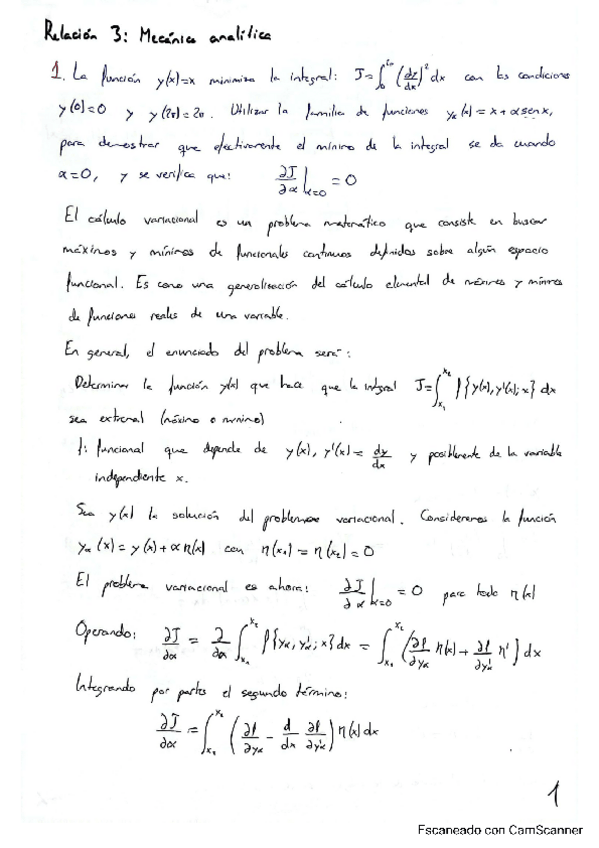 Relación 3: Mecánica analítica
1. La función y(x)=x minimiza la integral: J=∫₀^{2π} (dy/dx)² dx con las condiciones
y(0)=0 y y(2π)=2π. Utilizar la familia de funciones yα(x)=x+α sen x,
para demostrar que efectivamente el mínimo de la integral se da cuando
α=0, y se verifica que: ∂J/∂α|α=0 = 0
El cálculo variacional es un problema matemático que consiste en buscar
máximos y mínimos de funcionales continuos definidos sobre algún espacio
funcional. Es como una generalización del cálculo elemental de máximos y mínimos
de funciones reales de una variable.
En general, el enunciado del problema será:
Determinar la función y(x) que hace que la integral J=∫_{x₁}^{x₂} f{y(x),y'(x);x} dx
sea extremal (máximo o mínimo)
f: funcional que depende de y(x), y'(x)= dy/dx y posiblemente de la variable
independiente x.
Sea y(x) la solución del problema variacional. Consideremos la función
yα(x)=y(x)+αη(x) con η(x₁)=η(x₂)=0
El problema variacional es ahora: ∂J/∂α|α=0 = 0 para todo η(x)
Operando: ∂J/∂α = ∂/∂α ∫_{x₁}^{x₂} f{yα, y'α; x} dx = ∫_{x₁}^{x₂} (∂f/∂yα η(x) + ∂f/∂y'α η') dx
Integrando por partes el segundo término:
∂J/∂α = ∫_{x₁}^{x₂} (∂f/∂yα - d/dx ∂f/∂y'α) η(x) dx
1
Escaneado con CamScanner